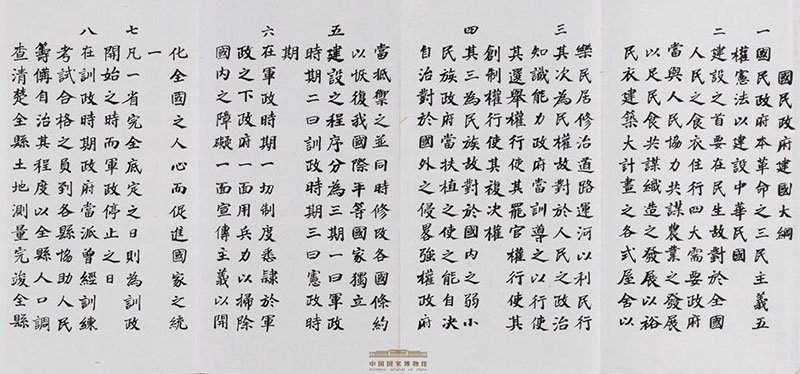 國民政府建國大綱
一 國民政府本革命之三民主義五
權憲法以建設中華民國
二 建設之首要在民生故對於全國
人民之食衣住行四大需要政府
當與人民協力共謀農業之發展
以足民食共謀織造之發展以裕
民衣建築大計畫之各式屋舍以
樂民居修治道路運河以利民行
三 其次為民權故對於人民之政治
知識能力政府當訓導之以行使
其選舉權行使其罷官權行使其
創制權行使其複決權
四 其三為民族故對於國內之弱小
民族政府當扶植之使之能自決
自治對於國外之侵畧強權政府
當抵禦之並同時修改各國條約
以恢復我國際平等國家獨立
五 建設之程序分為三期一曰軍政
時期二曰訓政時期三曰憲政時
期
六 在軍政時期一切制度悉隸於軍
政之下政府一面用兵力以掃除
國內之障礙一面宣傳主義以開
化全國之人心而促進國家之統
一
七 凡一省完全底定之日則為訓政
開始之時而軍政停止之日
八 在訓政時期政府當派曾經訓練
考試合格之員到各縣協助人民
籌備自治其程度以全縣人口調
查清楚全縣土地測量完竣全縣
中国国家博物馆
NATIONAL MUSEUM OF CHINA